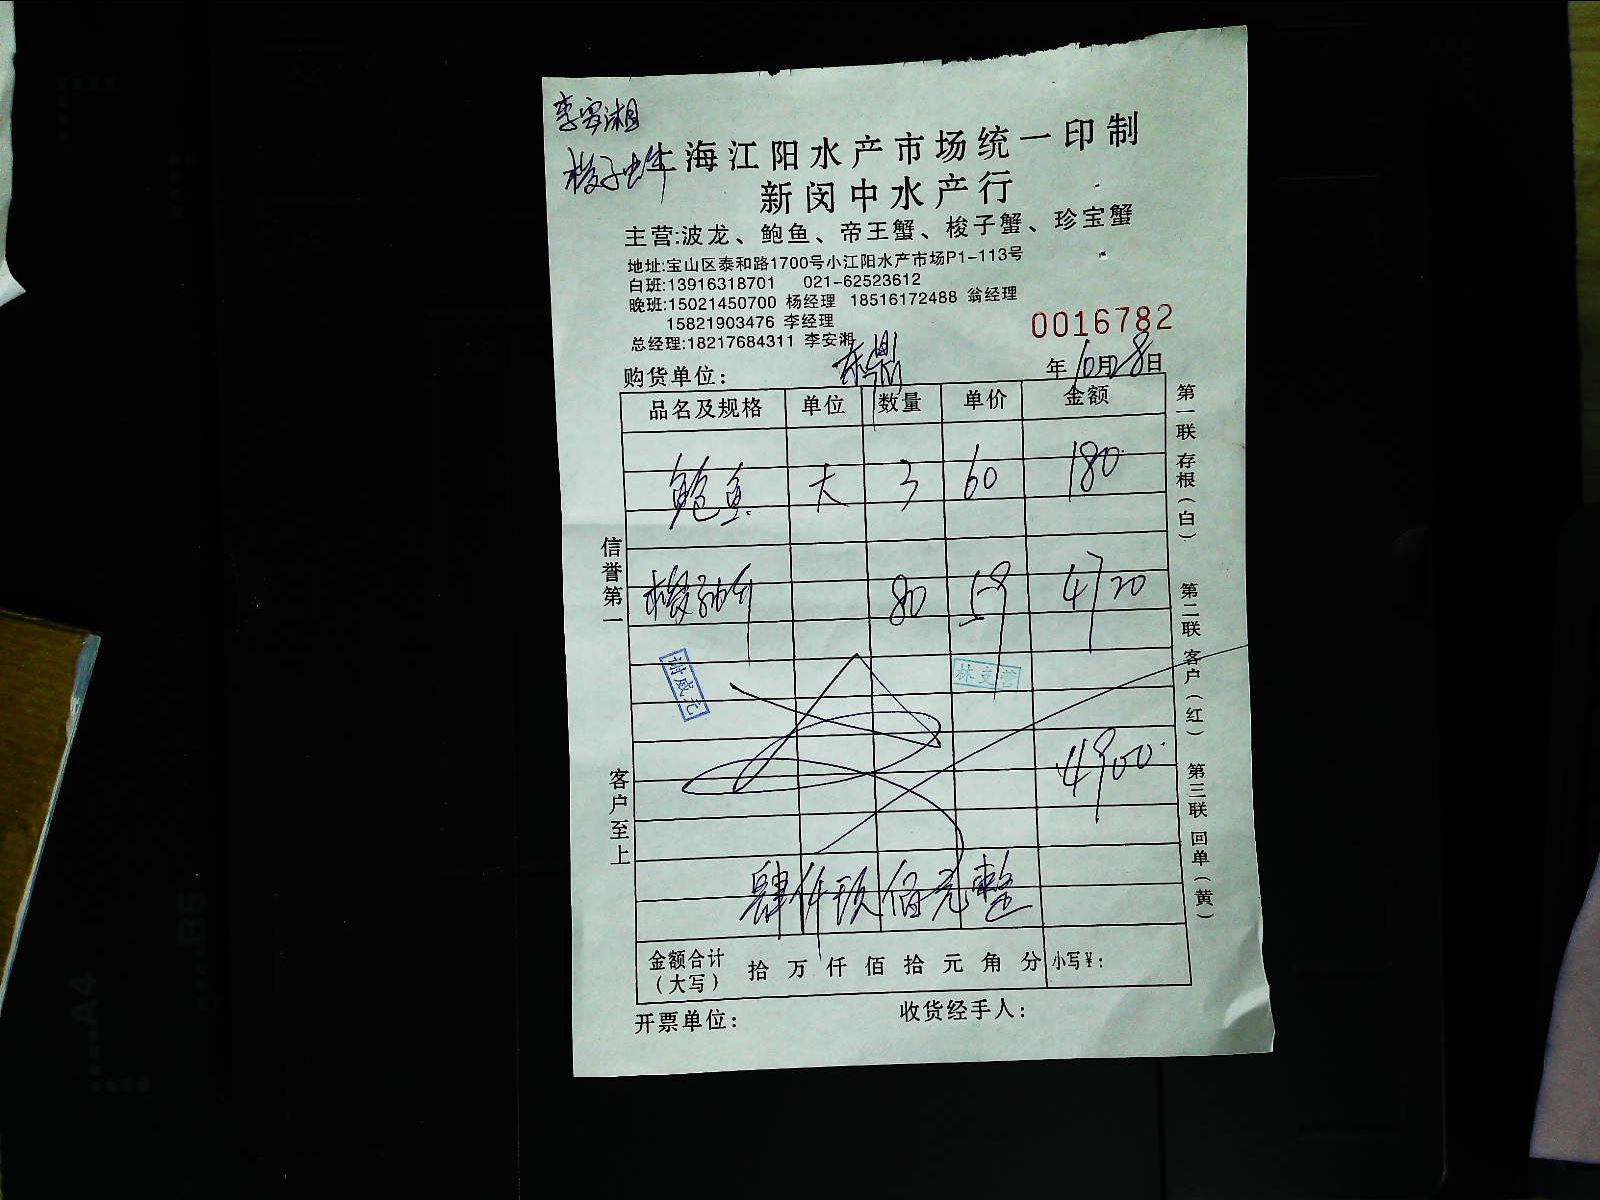 李安湘
梭子
上海江阳水产市场统一印制
新闵中水产行
主营:波龙、鲍鱼、帝王蟹、梭子蟹、珍宝蟹
地址:宝山区泰和路1700号小江阳水产市场P1-113号
白班:13916318701 021-62523612
晚班:15021450700 杨经理 18516172488 翁经理
15821903476 李经理
总经理:18217684311 李安湘
0016782
购货单位: 东鼎
年10月28日
品名及规格 单位 数量 单价 金额
鲍鱼 大 3 60 180
梭子 80 59 4720
谢威龙
林支营
4900
肆仟玖佰元整
金额合计(大写) 拾万仟佰拾元角分 小写¥:
开票单位: 收货经手人:
信誉第一
客户至上
第一联 存根(白)
第二联 客户(红)
第三联 回单(黄)
A4
B5